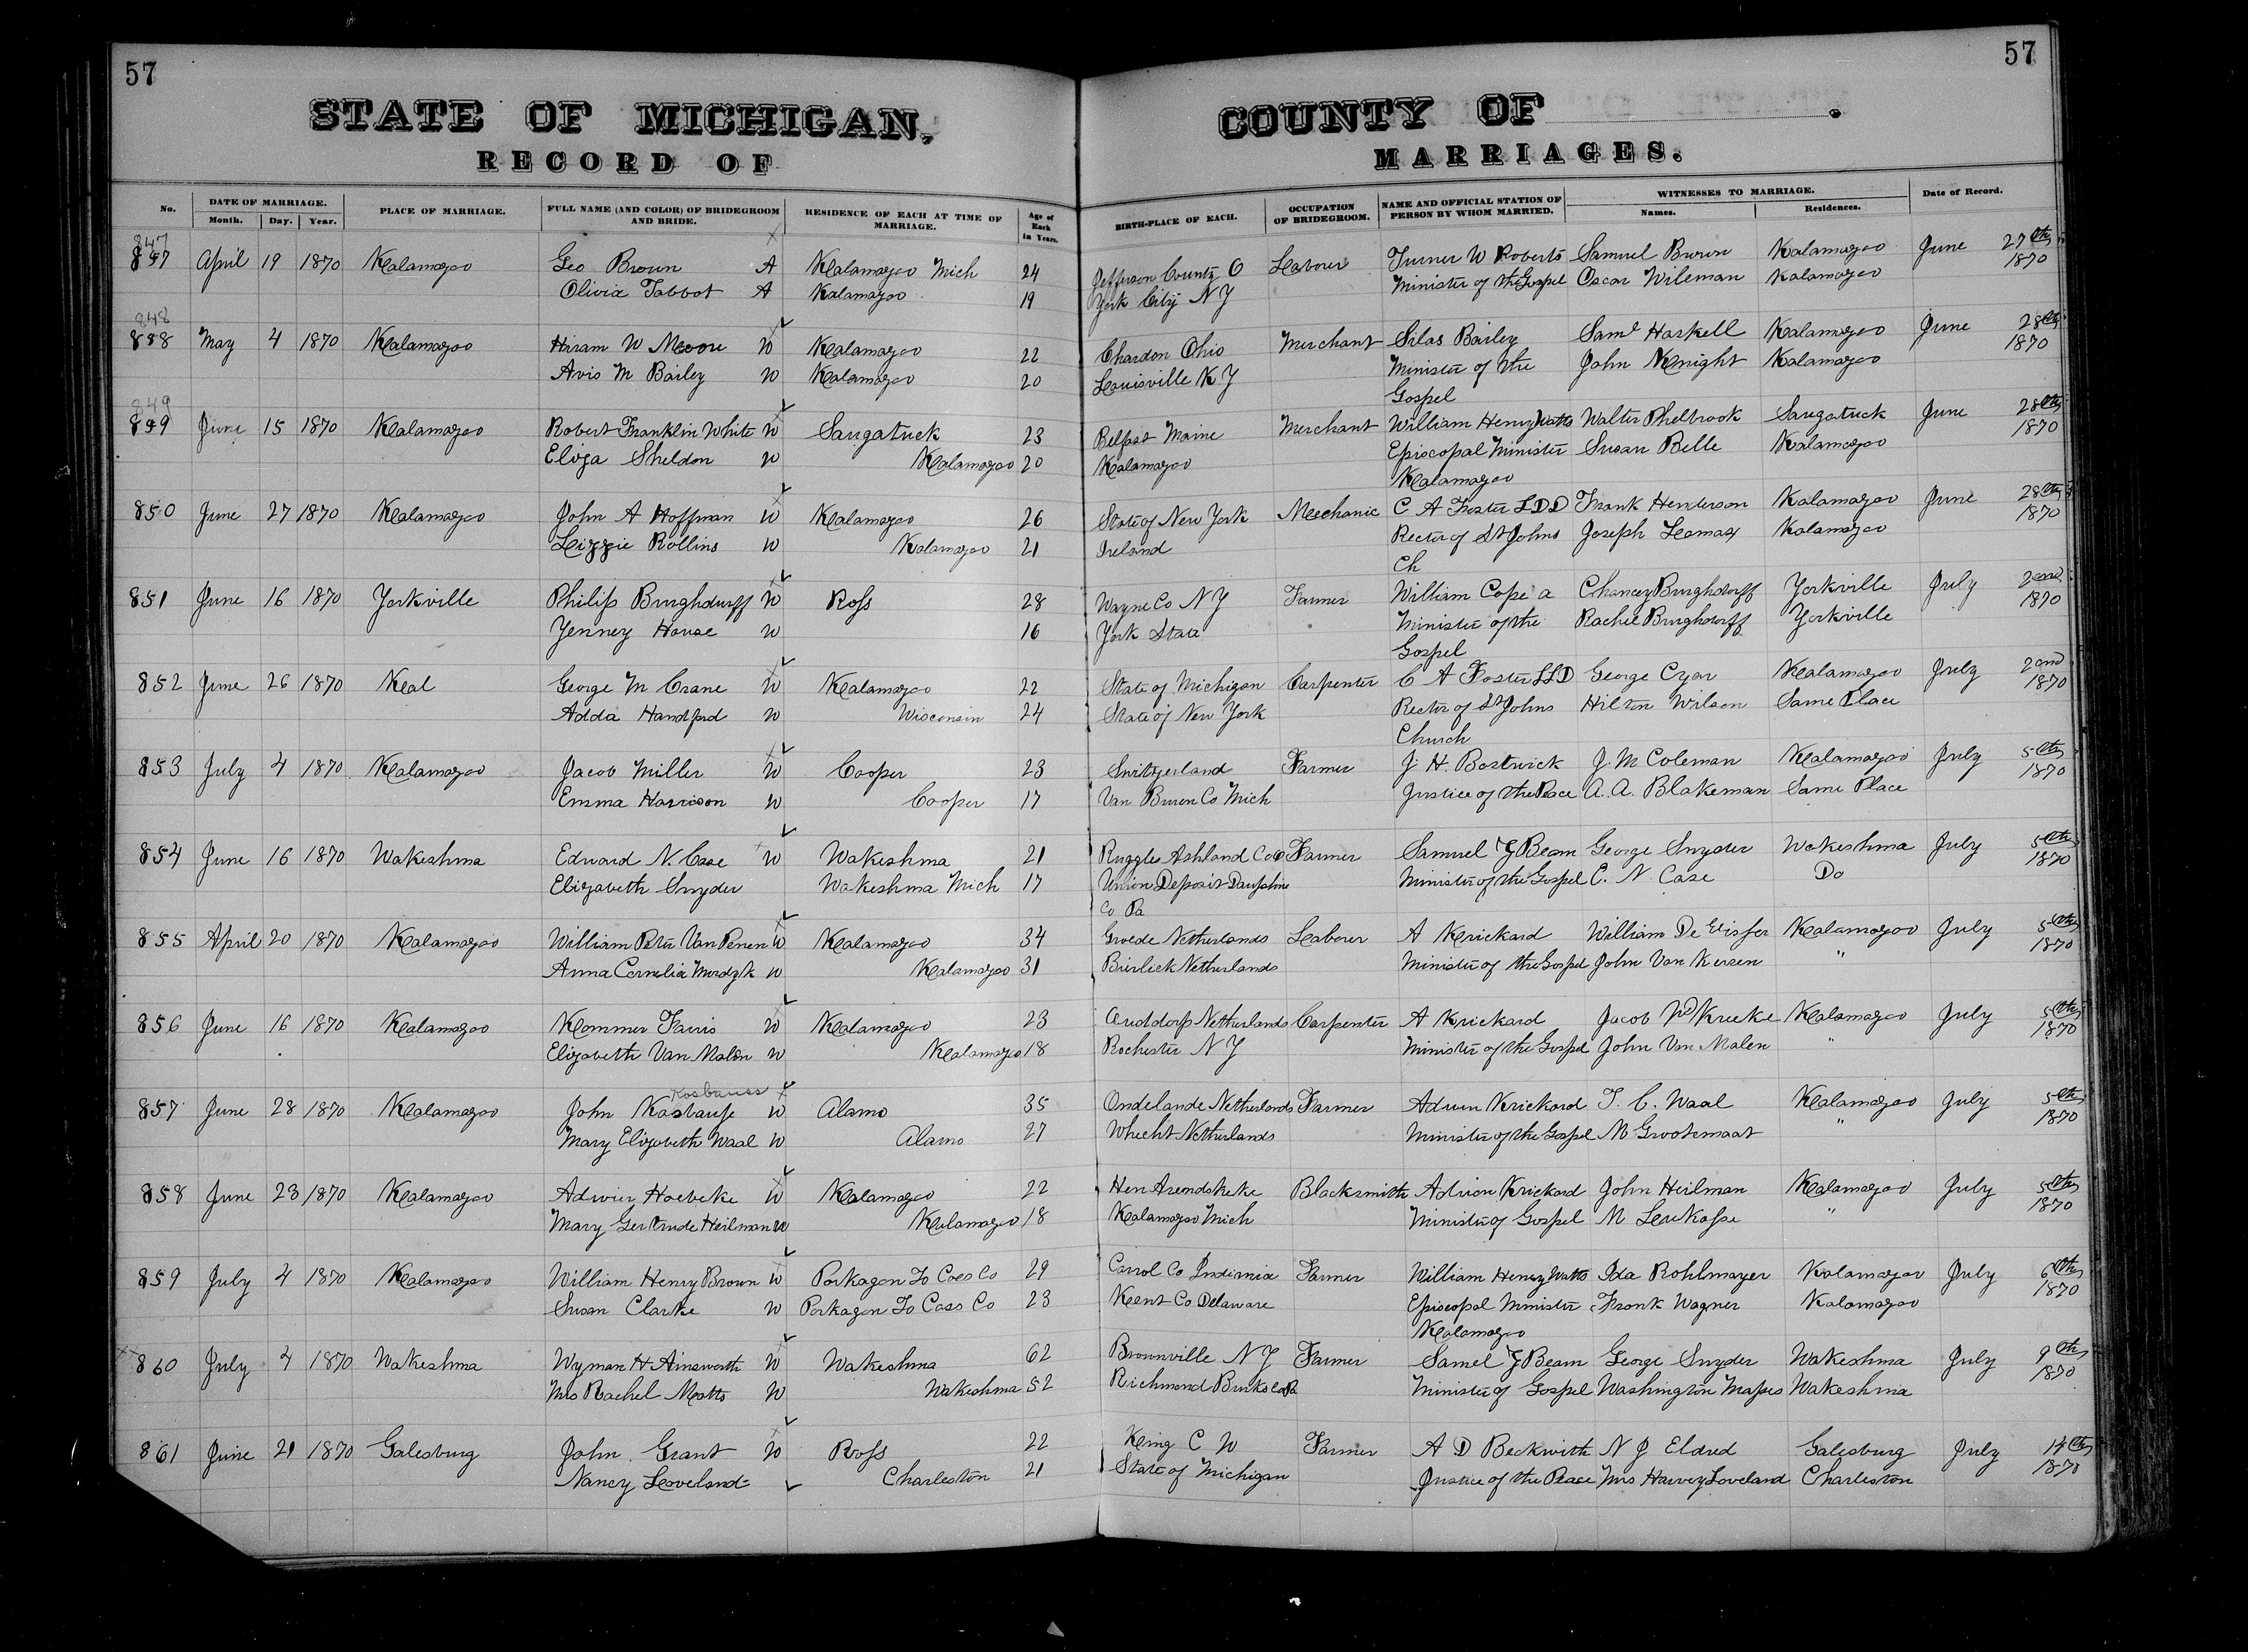 57
57
STATE OF MICHIGAN,
COUNTY OF
RECORD OF
MARRIAGES.
No. DATE OF MARRIAGE. Month. Day. Year. PLACE OF MARRIAGE. FULL NAME (AND COLOR) OF BRIDEGROOM AND BRIDE. RESIDENCE OF EACH AT TIME OF MARRIAGE. Age of Each in Years. BIRTH-PLACE OF EACH. OCCUPATION OF BRIDEGROOM. NAME AND OFFICIAL STATION OF PERSON BY WHOM MARRIED. WITNESSES TO MARRIAGE. Names. Residences. Date of Record.
847
857 April 19 1870 Kalamazoo Geo Brown A Kalamazoo Mich 24 Jefferson County O Laborer Turner W Roberts Samuel Brown Kalamazoo June 27th 1870
Olivia Tabbot A Kalamazoo 19 York City N Y Minister of the Gospel Oscar Wileman Kalamazoo
848
858 May 4 1870 Kalamazoo Hiram W Moore W Kalamazoo 22 Chardon Ohio Merchant Silas Bailey Saml Haskell Kalamazoo June 28th 1870
Avis M Bailey W Kalamazoo 20 Louisville K Y Minister of the John Knight Kalamazoo
Gospel
849
859 June 15 1870 Kalamazoo Robert Franklin White W Saugatuck 23 Belfast Maine Merchant William Henry Watts Walter Phelbrook Saugatuck June 28th 1870
Eliza Sheldon W Kalamazoo 20 Kalamazoo Episcopal Minister Susan Belle Kalamazoo
Kalamazoo
850 June 27 1870 Kalamazoo John A Hoffman W Kalamazoo 26 State of New York Mechanic C A Foster LDD Frank Henderson Kalamazoo June 28th 1870
Lizzie Rollins W Kalamazoo 21 Ireland Rector of St Johns Joseph Lomax Kalamazoo
Ch
851 June 16 1870 Yorkville Philip Burghdurff W Ross 28 Wayne Co N Y Farmer William Cope a Chancey Burghdorff Yorkville July 2nd 1870
Yenney House W 16 York State Minister of the Rachel Burghdorff Yorkville
Gospel
852 June 26 1870 Kal George M Crane W Kalamazoo 22 State of Michigan Carpenter C A Foster LLD George Cyar Kalamazoo July 2nd 1870
Adda Handford W Wisconsin 24 State of New York Rector of St Johns Hilton Wilson Same Place
Church
853 July 4 1870 Kalamazoo Jacob Miller W Cooper 23 Switzerland Farmer J. H. Bostwick J. M Coleman Kalamazoo July 5th 1870
Emma Harrison W Cooper 17 Van Buren Co Mich Justice of the Peace A. A. Blakeman Same Place
854 June 16 1870 Wakeshma Edward N. Case W Wakeshma 21 Ruggles Ashland Co O Farmer Samuel Y Beam George Snyder Wakeshma July 5th 1870
Elizabeth Snyder Wakeshma Mich 17 Union Deposit Dauphine Minister of the Gospel E. N. Case Do
Co Pa
855 April 20 1870 Kalamazoo William Peter Van Penen W Kalamazoo 34 Groede Netherlands Laborer A Krickard William De Visser Kalamazoo July 5th 1870
Anna Cornelia W Kalamazoo 31 Netherlands Minister of the Gospel John Van Kersen "
856 June 16 1870 Kalamazoo Kommer Farris W Kalamazoo 23 Ouddorp Netherlands Carpenter A Krickard Jacob Kalamazoo July 5th 1870
Elizabeth Van Malen W Kalamazoo 18 Rochester N Y Minister of the Gospel John Van Malen "
Kosbauss
857 June 28 1870 Kalamazoo John Kosbause W Alamo 35 Ondelande Netherlands Farmer Adrian Krickard T. C. Waal Kalamazoo July 5th 1870
Mary Elizabeth Waal W Alamo 27 Whecht Netherlands Minister of the Gospel M Grootemaat "
858 June 23 1870 Kalamazoo Adrian Hoebeke W Kalamazoo 22 Hen Arendskeke Blacksmith Adrian Krickard John Heilman Kalamazoo July 5th 1870
Mary Gertrude Heilman W Kalamazoo 18 Kalamazoo Mich Minister of Gospel M Leukasse "
859 July 4 1870 Kalamazoo William Henry Brown W Porkagon To Cass Co 29 Carrol Co Indiania Farmer William Henry Watts Ida Rohlmayer Kalamazoo July 6th 1870
Susan Clarke W Porkagon To Cass Co 23 Kent Co Delaware Episcopal Minister Frank Wagner Kalamazoo
Kalamazoo
860 July 4 1870 Wakeshma Wyman H Ainsworth W Wakeshma 62 Brownville N Y Farmer Samel Y Beam George Snyder Wakeshma July 9th 1870
Mrs Rachel Motts W Wakeshma 52 Richmond Burks Co Pa Minister of Gospel Washington Mapes Wakeshma
861 June 21 1870 Galesburg John Grant W Ross 22 King C W Farmer A D Beckwith N J Eldred Galesburg July 14th 1870
Nancy Loveland Charleston 21 State of Michigan Justice of the Peace Mrs Harvey Loveland Charleston